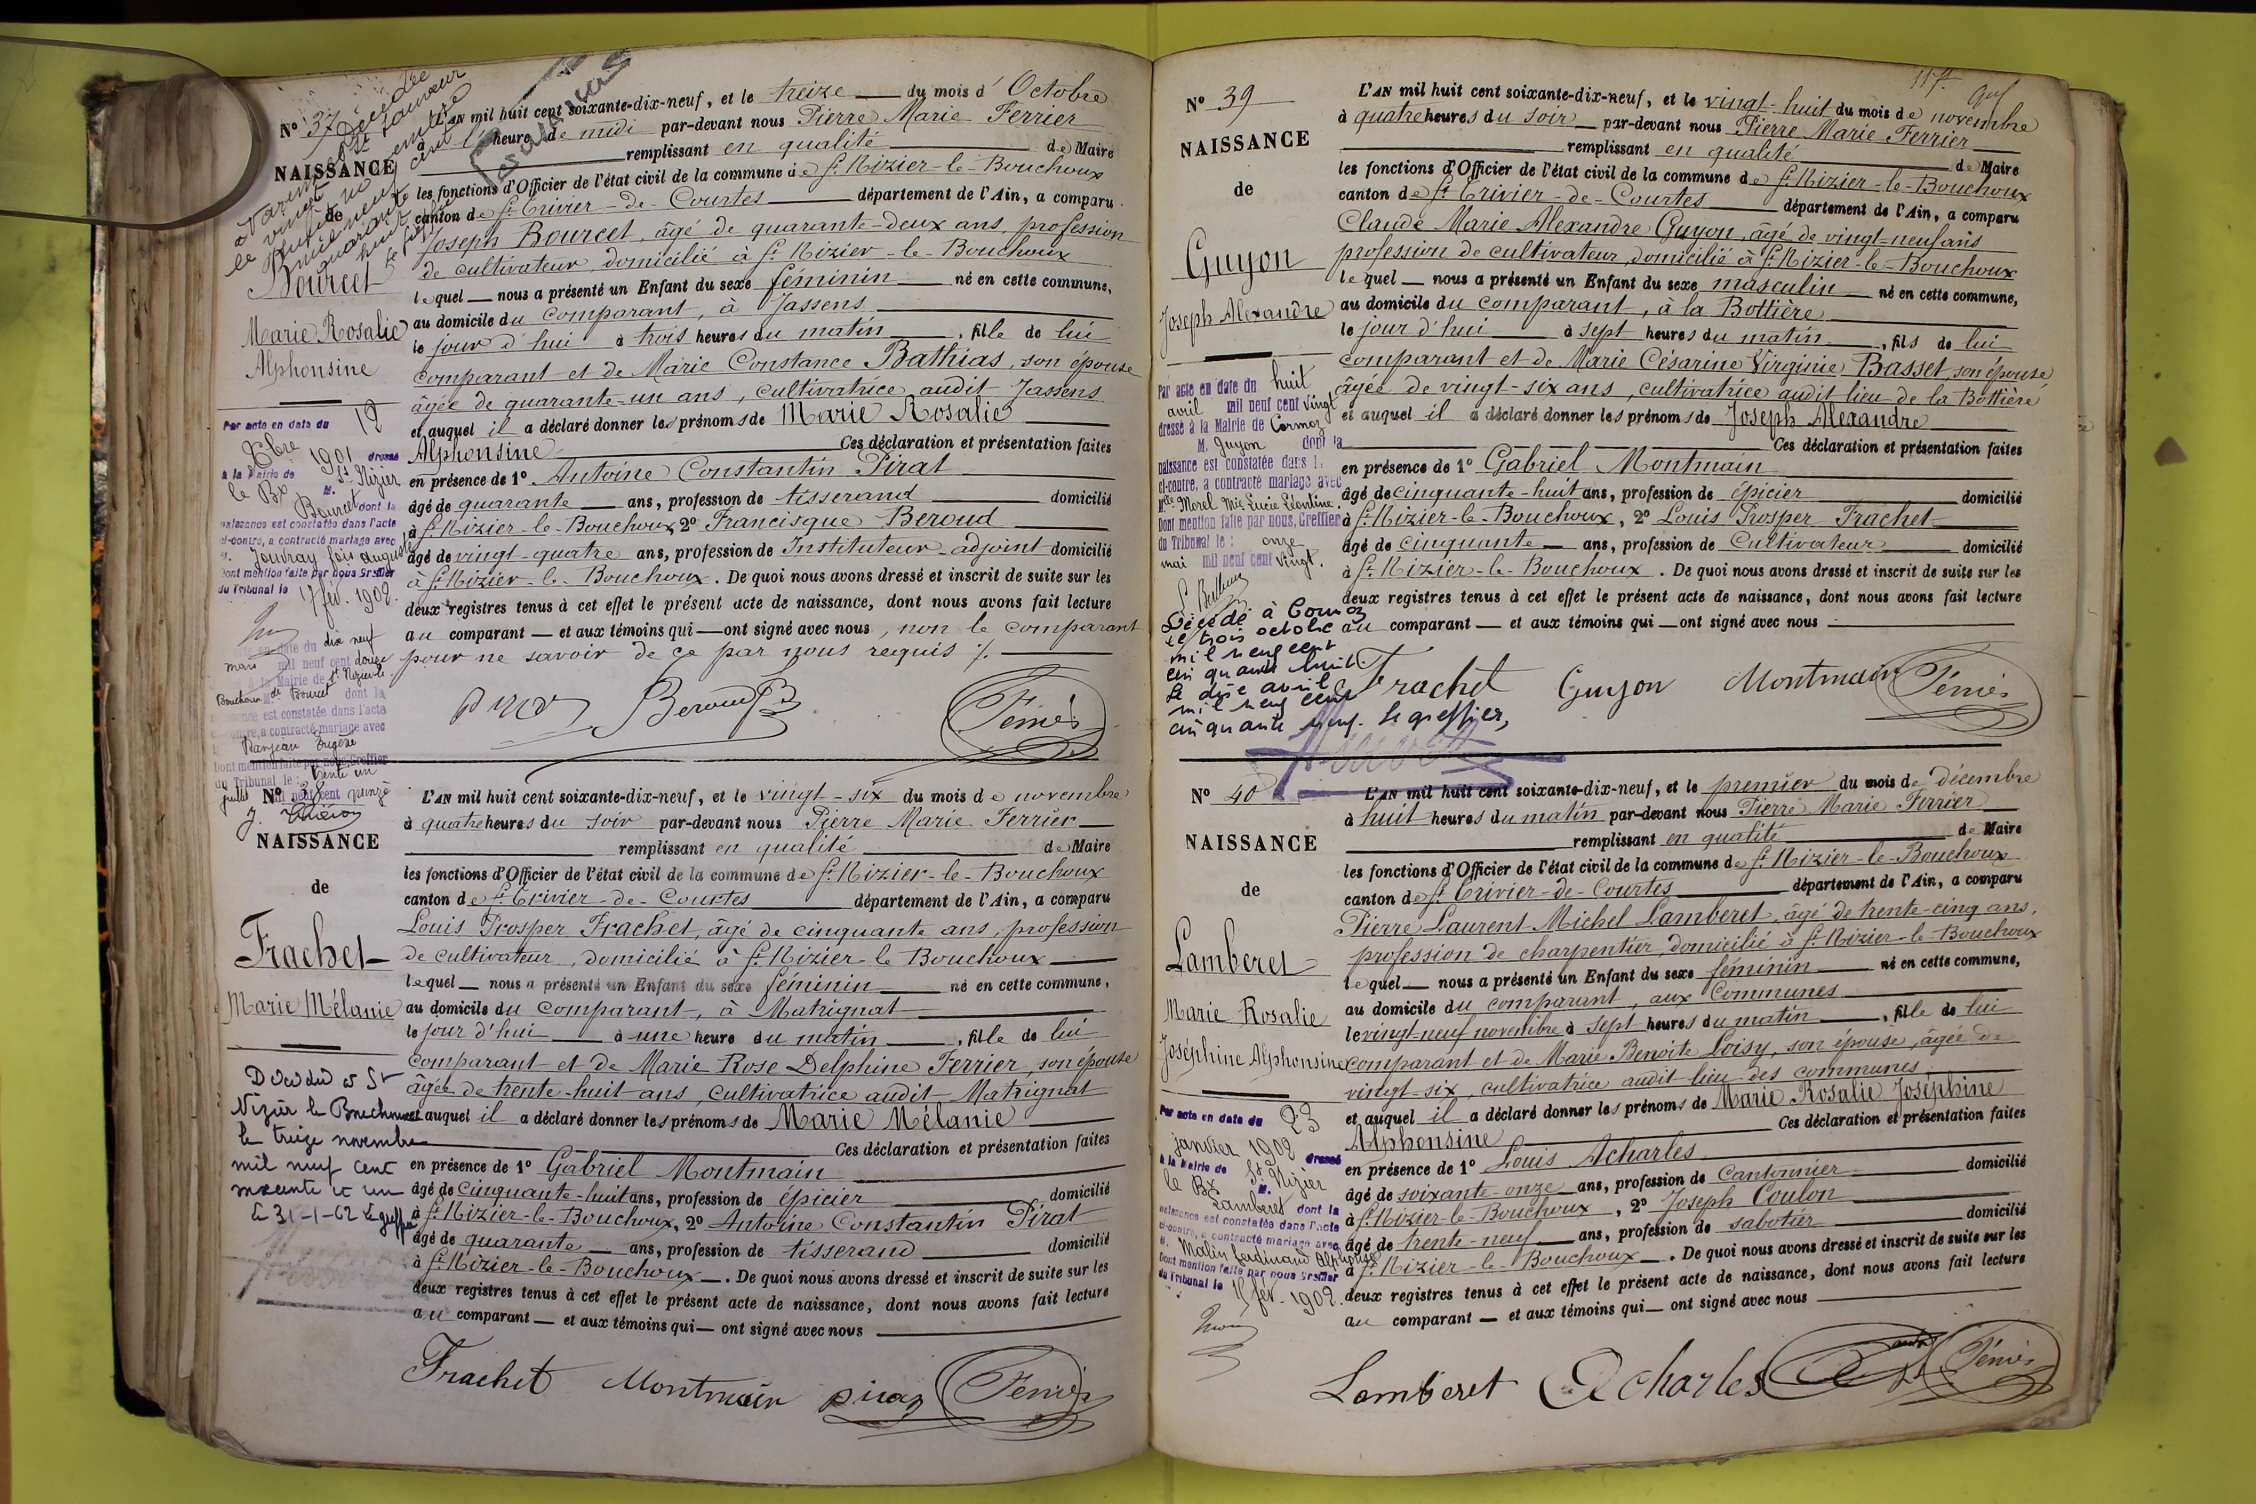 N° 37
NAISSANCE
de
Bourcet
Marie Rosalie
Alphonsine
L'AN mil huit cent soixante-dix-neuf, et le treize du mois d' Octobre
à heure de midi par-devant nous Pierre Marie Ferrier
remplissant en qualité de Maire
les fonctions d'Officier de l'état civil de la commune de St Nizier-le-Bouchoux
canton de St Trivier-de-Courtes département de l'Ain, a comparu
Joseph Bourcet, âgé de quarante-deux ans, profession
de cultivateur, domicilié à St Nizier-le-Bouchoux
lequel nous a présenté un Enfant du sexe féminin né en cette commune,
au domicile du comparant, à Jassens
le jour d'hui à trois heures du matin, fille de lui
comparant et de Marie Constance Bathias, son épouse
âgée de quarante-un ans, cultivatrice audit Jassens
et auquel il a déclaré donner les prénoms de Marie Rosalie
Alphonsine Ces déclaration et présentation faites
en présence de 1° Antoine Constantin Pirat
âgé de quarante ans, profession de tisserand domicilié
à St Nizier-le-Bouchoux, 2° Francisque Beroud
âgé de vingt-quatre ans, profession de Instituteur-adjoint domicilié
à St Nizier-le-Bouchoux. De quoi nous avons dressé et inscrit de suite sur les
deux registres tenus à cet effet le présent acte de naissance, dont nous avons fait lecture
au comparant et aux témoins qui ont signé avec nous, non le comparant
pour ne savoir de ce par nous requis ./.
Beroud
Ferrier
Par acte en date du 12
Xbre 1901 dressé
à la Mairie de St Nizier
le Bx M.
Bourcet dont la
naissance est constatée dans l'acte
ci-contre, a contracté mariage avec
M. Jouvray fois auguste
Dont mention faite par nous Greffier
du Tribunal le 17 fév. 1902.
en date du dix neuf
mars mil neuf cent douze
à la Mairie de St Nizier le
Bouchoux M. Bourcet dont la
naissance est constatée dans l'acte
ci-contre, a contracté mariage avec
Ranjean Eugène
Dont mention faite par nous, Greffier
du Tribunal le : trente un
juillet mil neuf cent quinze
N° 38
NAISSANCE
de
Frachet
Marie Mélanie
L'AN mil huit cent soixante-dix-neuf, et le vingt-six du mois de novembre
à quatre heures du soir par-devant nous Pierre Marie Ferrier
remplissant en qualité de Maire
les fonctions d'Officier de l'état civil de la commune de St Nizier-le-Bouchoux
canton de St Trivier-de-Courtes département de l'Ain, a comparu
Louis Prosper Frachet, âgé de cinquante ans, profession
de cultivateur, domicilié à St Nizier-le-Bouchoux
lequel nous a présenté un Enfant du sexe féminin né en cette commune,
au domicile du comparant, à Matrignat
le jour d'hui à une heure du matin, fille de lui
comparant et de Marie Rose Delphine Ferrier, son épouse
âgée de trente-huit ans, cultivatrice audit Matrignat
et auquel il a déclaré donner les prénoms de Marie Mélanie
Ces déclaration et présentation faites
en présence de 1° Gabriel Montmain
âgé de cinquante-huit ans, profession de épicier domicilié
à St Nizier-le-Bouchoux, 2° Antoine Constantin Pirat
âgé de quarante ans, profession de tisserand domicilié
à St Nizier-le-Bouchoux. De quoi nous avons dressé et inscrit de suite sur les
deux registres tenus à cet effet le présent acte de naissance, dont nous avons fait lecture
au comparant et aux témoins qui ont signé avec nous
Frachet Montmain Pirat Ferrier
Décédée à St
Nizier le Bouchoux
le treize novembre
mil neuf cent
soixante et un
Le 31-1-62 Le greffier
N° 39
NAISSANCE
de
Guyon
Joseph Alexandre
L'AN mil huit cent soixante-dix-neuf, et le vingt-huit du mois de novembre
à quatre heures du soir par-devant nous Pierre Marie Ferrier
remplissant en qualité de Maire
les fonctions d'Officier de l'état civil de la commune de St Nizier-le-Bouchoux
canton de St Trivier-de-Courtes département de l'Ain, a comparu
Claude Marie Alexandre Guyon, âgé de vingt-neuf ans
profession de cultivateur, domicilié à St Nizier-le-Bouchoux
lequel nous a présenté un Enfant du sexe masculin né en cette commune,
au domicile du comparant, à la Bottière
le jour d'hui à sept heures du matin, fils de lui
comparant et de Marie Césarine Virginie Basset, son épouse
âgée de vingt-six ans, cultivatrice audit lieu de la Bottière
et auquel il a déclaré donner les prénoms de Joseph Alexandre
Ces déclaration et présentation faites
en présence de 1° Gabriel Montmain
âgé de cinquante-huit ans, profession de épicier domicilié
à St Nizier-le-Bouchoux, 2° Louis Prosper Frachet
âgé de cinquante ans, profession de Cultivateur domicilié
à St Nizier-le-Bouchoux. De quoi nous avons dressé et inscrit de suite sur les
deux registres tenus à cet effet le présent acte de naissance, dont nous avons fait lecture
au comparant et aux témoins qui ont signé avec nous
Frachet Guyon Montmain Ferrier
Par acte en date du huit
avril mil neuf cent vingt
dressé à la Mairie de Cormoz
M. Guyon dont la
naissance est constatée dans l'
ci-contre, a contracté mariage avec
Mlle Morel Mie Lucie Léontine.
Dont mention faite par nous, Greffier
du Tribunal le : onze
mai mil neuf cent vingt.
Décédé à Cormoz
le trois octobre
mil neuf cent
cinquante huit.
Le dix avril
mil neuf cent
cinquante neuf. Le greffier,
N° 40
NAISSANCE
de
Lamberet
Marie Rosalie
Joséphine Alphonsine
L'AN mil huit cent soixante-dix-neuf, et le premier du mois de décembre
à huit heures du matin par-devant nous Pierre Marie Ferrier
remplissant en qualité de Maire
les fonctions d'Officier de l'état civil de la commune de St Nizier-le-Bouchoux
canton de St Trivier-de-Courtes département de l'Ain, a comparu
Pierre Laurent Michel Lamberet, âgé de trente-cinq ans,
profession de charpentier, domicilié à St Nizier-le-Bouchoux
lequel nous a présenté un Enfant du sexe féminin né en cette commune,
au domicile du comparant, aux Communes
le vingt-neuf novembre à sept heures du matin, fille de lui
comparant et de Marie Benoite Loisy, son épouse, âgée de
vingt-six, cultivatrice audit lieu des communes
et auquel il a déclaré donner les prénoms de Marie Rosalie Joséphine
Alphonsine Ces déclaration et présentation faites
en présence de 1° Louis Acharles
âgé de soixante-onze ans, profession de Cantonnier domicilié
à St Nizier-le-Bouchoux, 2° Joseph Coulon
âgé de trente-neuf ans, profession de sabotier domicilié
à St Nizier-le-Bouchoux. De quoi nous avons dressé et inscrit de suite sur les
deux registres tenus à cet effet le présent acte de naissance, dont nous avons fait lecture
au comparant et aux témoins qui ont signé avec nous
Lamberet Acharles Ferrier
Par acte en date du 23
janvier 1902 dressé
à la Mairie de St Nizier
le Bx M.
Lamberet dont la
naissance est constatée dans l'acte
ci-contre, a contracté mariage avec
M. Matin Ferdinand Alphonse
Dont mention faite par nous Greffier
du Tribunal le 15 fév. 1902.